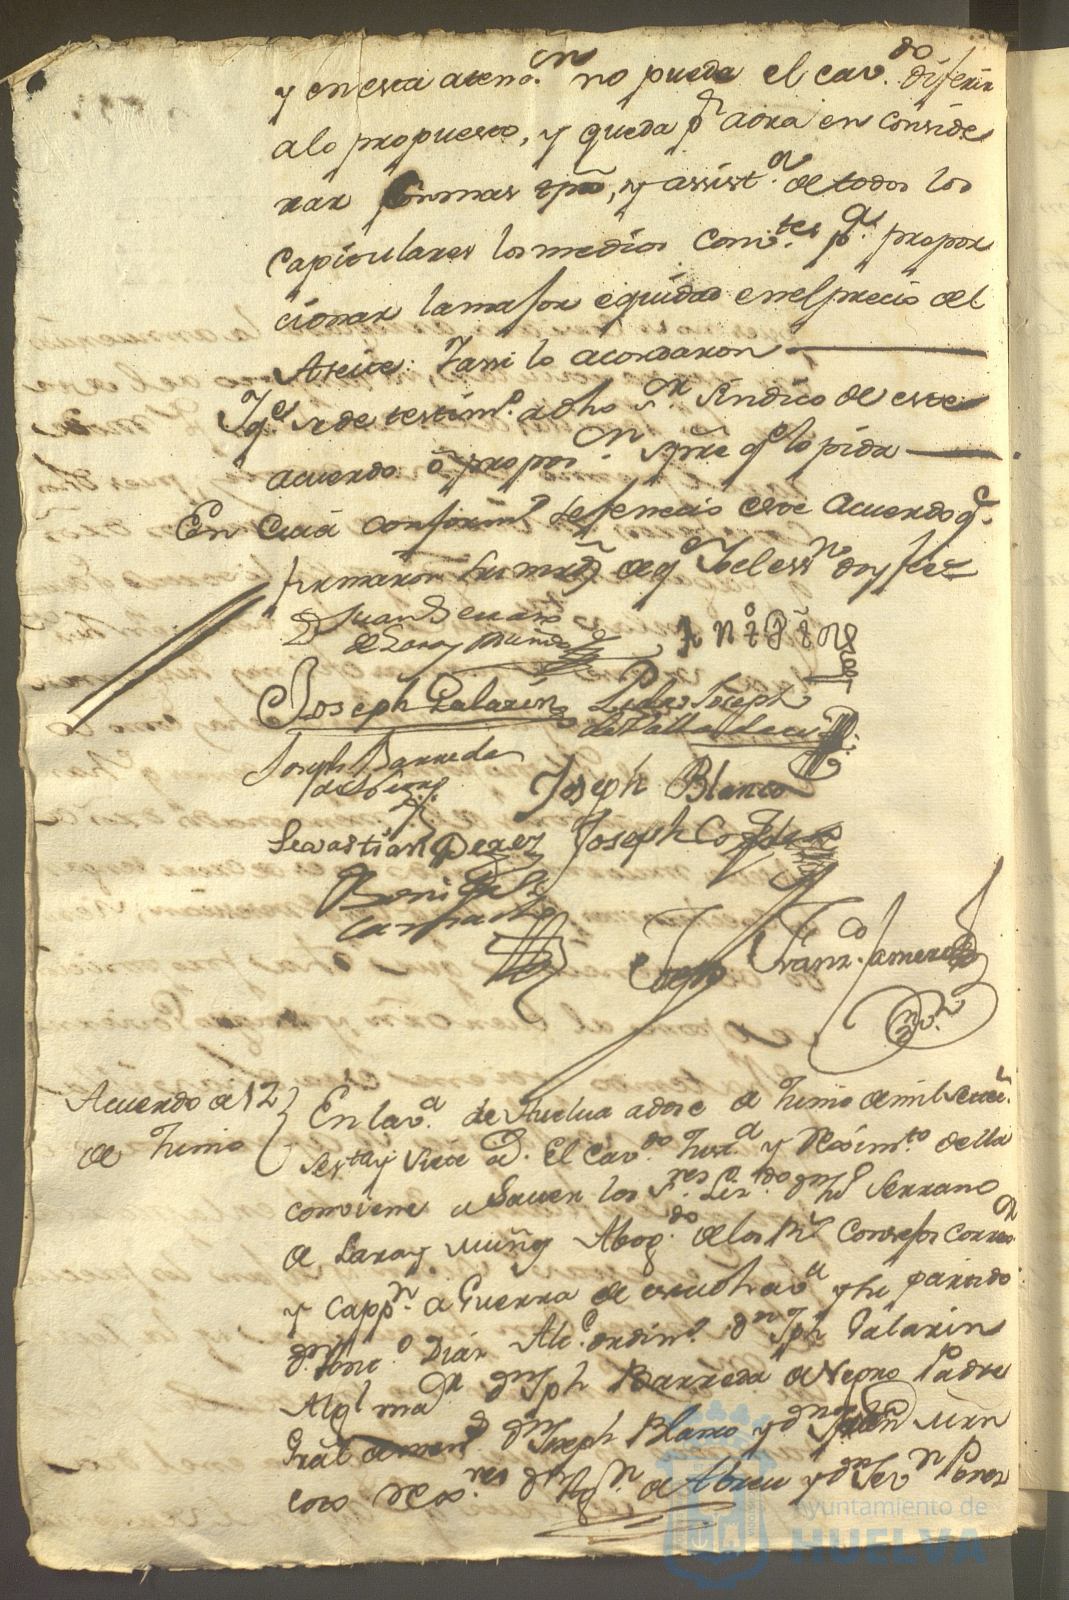 y en esta atenc.on no puede el cav.do diferir
a lo propuesto, y queda pr aora en conside
rar con mas tpo, y assist.a de todos los
capitulares los medios conv.tes pa. propor
cionar la maior equidad en el precio del
Aseite: Yassi lo acordaron
Yqe se de testimo. a dho Sr. Sindico de este
acuerdo ô propos.on spre qe lo pida
En cuia conformd. se fenecio este Acuerdo q.
firmaron sus mrds de q. Yo el essno doy fee
Dn Juan Serrano
de Lara y Muñoz
Anto Diaz
Joseph Galarin
Pedro Joseph
Joseph Barreda
Joseph Blanco
Sevastian Perez
Joseph Co
Beni
Camacho
Joseph
Franco. Jamerez
Acuerdo de 12
de Junio
En la v.a de Huelva a dose de Junio de mil setec.
sesta y siete as. El Cav.do Just.a y Reximto de ella
combiene a Saver los Sres. Lizdo. Dn Jn Serrano
de Lara y Muñoz Abogdo. de los Rs Consejos Corrxor
y cappn. a Guerra de esta dha va y su partido
Dn Anto Diaz Alce. ordino. Dn Jph Galarin
Algl mar Dn Jph Barreda de Negro Padre
Gral de men Dn Joseph Blanco y Dn
cos Rexres Dn de Abreu y Dn Sevn Perez
Ayuntamiento de
HUELVA